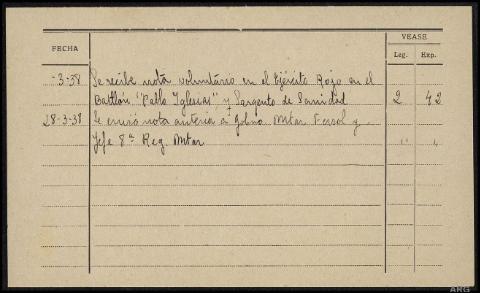 FECHA
VEASE
Leg. Exp.
-3-38 Se recibe nota voluntario en el Ejército Rojo en el
Batllón. "Pablo Iglesias" y Sargento de Sanidad 2 42
28-3-38 Se envió nota anterior a Gobno. Mtar Ferrol y
Jefe 8ª Reg. Mtar " "
ARG